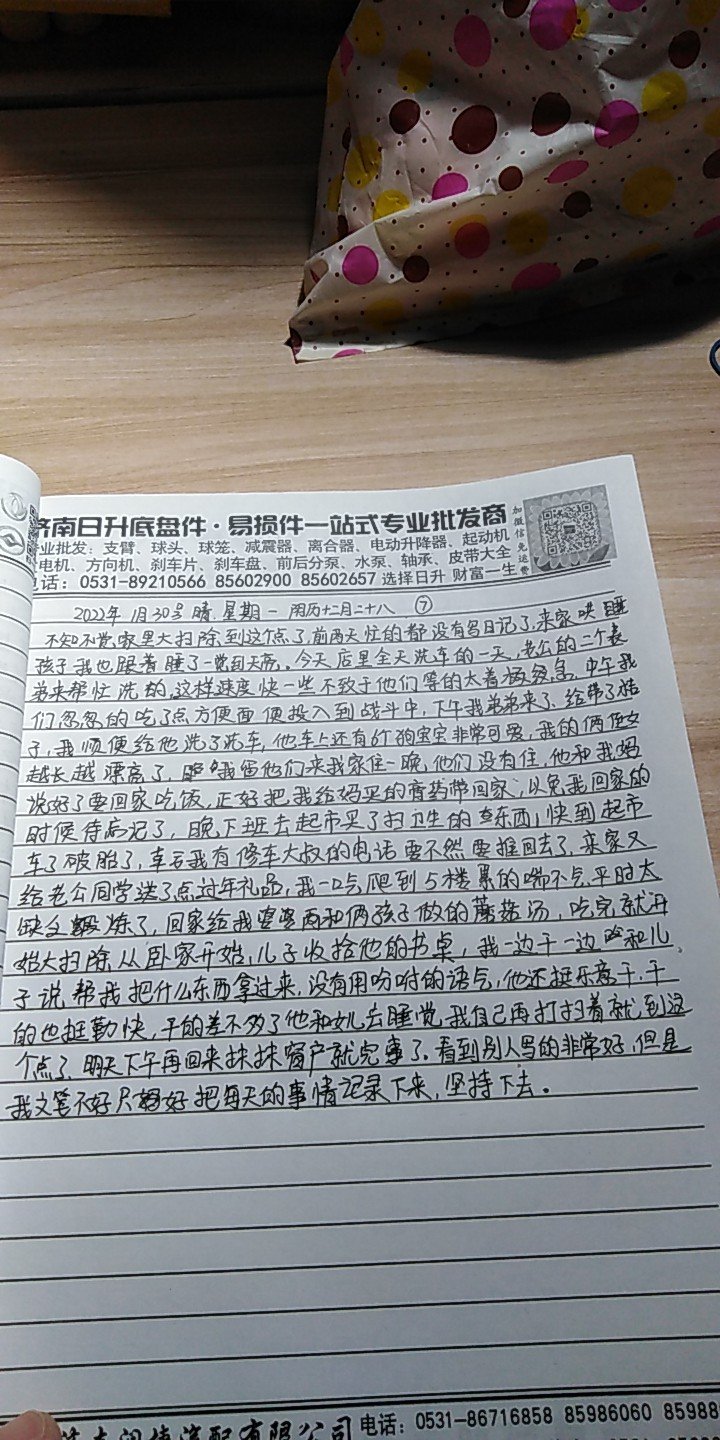 济南日升底盘件·易损件一站式专业批发商
加微信免运费
业批发：支臂、球头、球笼、减震器、离合器、电动升降器、起动机
电机、方向机、刹车片、刹车盘、前后分泵、水泵、轴承、皮带大全
电话：0531-89210566 85602900 85602657 选择日升 财富一生
2022年1月30号 晴 星期一 阴历十二月二十八 ⑦
不知不觉家里大扫除,到这个点了,前两天忙的都没有写日记了,来家哄睡
孩子我也跟着睡了一觉到天亮。今天店里全天洗车的一天,老公的二个表
弟来帮忙洗的,这样速度快一些不致于他们等的太着极,中午我
们忽忽的吃了点方便面便投入到战斗中,下午我弟弟来了,给带了桔
子,我顺便给他洗了洗车,他车上还有6只狗宝宝非常可爱,我的俩侄女
越长越漂亮了,我留他们来我家住一晚,他们没有住,他和我妈
说好了要回家吃饭,正好把我给妈买的膏药带回家,以免我回家的
时候忘记了,晚下班去超市买了扫卫生的东西,快到超市
车了破胎了,幸亏我有修车大叔的电话要不然要推回去了,来家又
给老公同学送了点过年礼品,我一口气爬到5楼累的喘不气,平时太
缺乏锻炼了,回家给我婆婆两和俩孩子做的蘑菇汤,吃完就开
始大扫除从卧家开始,儿子收拾他的书桌,我一边干一边和儿
子说帮我把什么东西拿过来,没有用吩咐的语气,他还挺乐意干,干
的也挺勤快,干的差不多了他和女儿去睡觉,我自己再打扫着就到这
个点了,明天下午再回来抹抹窗户就完事了。看到别人写的非常好,但是
我文笔不好只能好把每天的事情记录下来,坚持下去。
汽配有限公司 电话：0531-86716858 85986060 85988